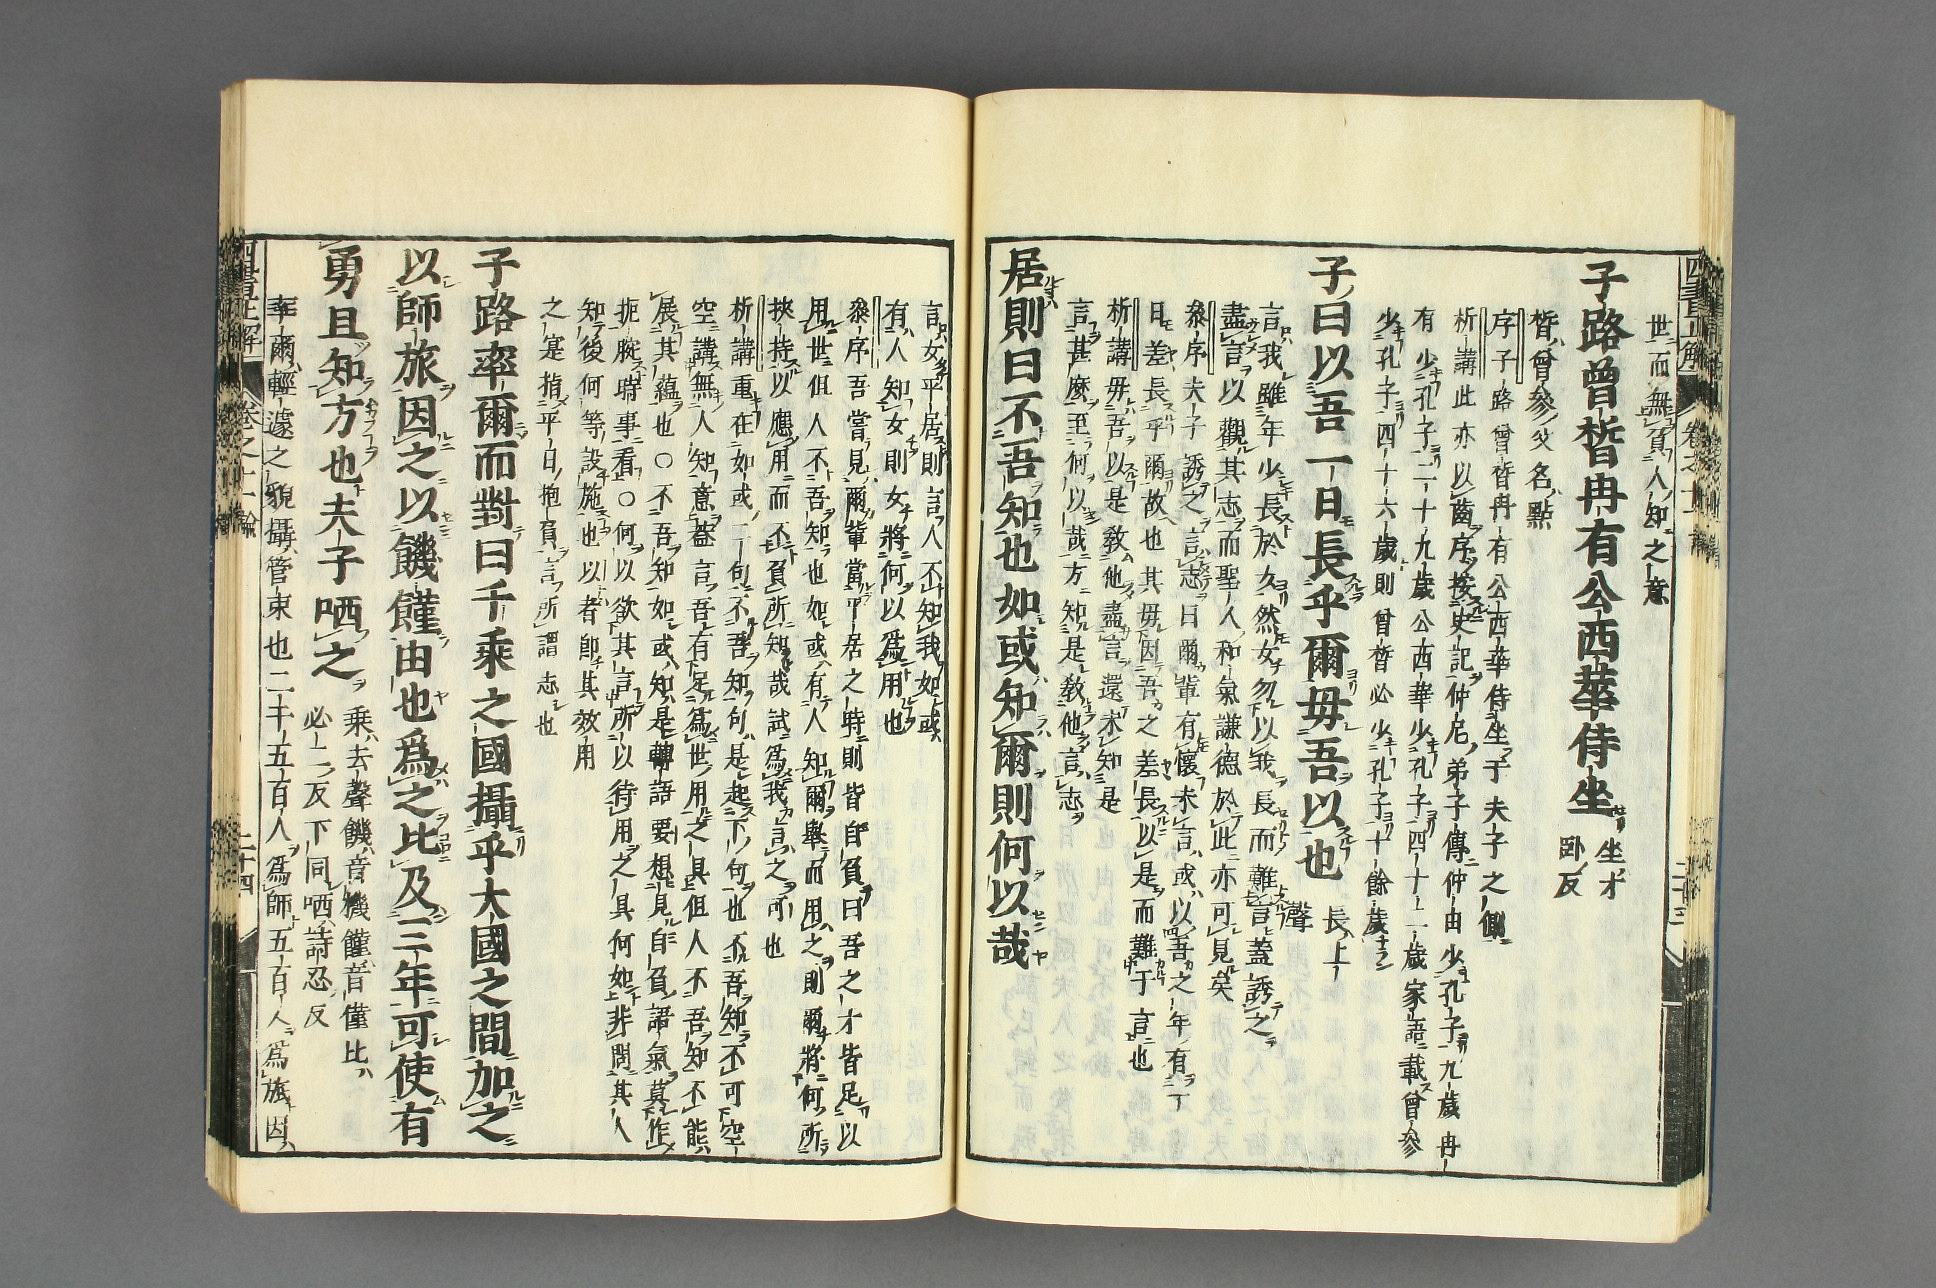 世而無負人知之意
子路曾晳冉有公西華侍坐 坐才臥反
晳曾參父名點
序子路曾晳冉有公西華侍坐于夫子之側
析講此亦以齒序按史記仲尼弟子傳仲由少孔子九歲冉
有少孔子二十九歲公西華少孔子四十二歲家語載曾參
少孔子四十六歲則曾晳必少孔子十餘歲
子曰以吾一日長乎爾毋吾以也 長上聲
言我雖年少長於女然女勿以我長而難言蓋誘之
盡言以觀其志而聖人和氣謙德於此亦可見矣
叅序夫子誘之言志曰爾輩有懷未言或以吾之年有一
日差長乎爾故也其毋因吾之差長以是而難于言也
析講毋吾以是教他盡言還未知是
言甚麼至何以哉方知是教他言志
居則曰不吾知也如或知爾則何以哉
言女平居則言人不知我如或
有人知女則女將何以爲用也
叅序吾嘗見爾輩當平居之時則皆自負曰吾之才皆足以
用世但人不吾知也如或有人知爾舉而用之則爾將何所
挾持以應用而不負所知哉試爲我言之可也
析講重在如或二句不吾知句是起下句也不吾知不可空
空講無人知意蓋言吾有足爲世用之具但人不吾知不能
展其蘊也○不吾知如或知是轉語要想見自負語氣莫作
扼腕時事看○何以欲其言所以待用之具何如非問其人
知後何等設施也以者卽其效用
之寔指平日抱負言所謂志也
子路率爾而對曰千乘之國攝乎大國之間加之
以師旅因之以饑饉由也爲之比及三年可使有
勇且知方也夫子哂之 乘去聲饑音機饉音僅比必二反下同哂詩忍反
率爾輕遽之貌攝管束也二千五百人爲師五百人爲旅因
四書正解
卷之十一
論
二十四